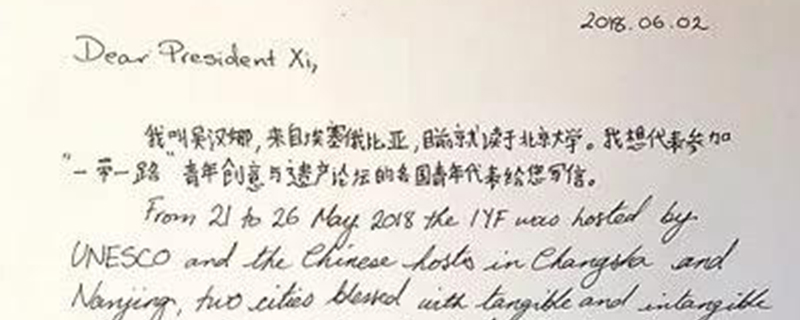 2018.06.02
Dear President Xi,
我叫吴汉娜，来自埃塞俄比亚，目前就读于北京大学。我想代表参加
"一带一路"青年创意与遗产论坛的各国青年代表给您写信。
From 21 to 26 May 2018 the IYF was hosted by
UNESCO and the Chinese hosts in Changsha and
Nanjing, two cities blessed with tangible and intangible